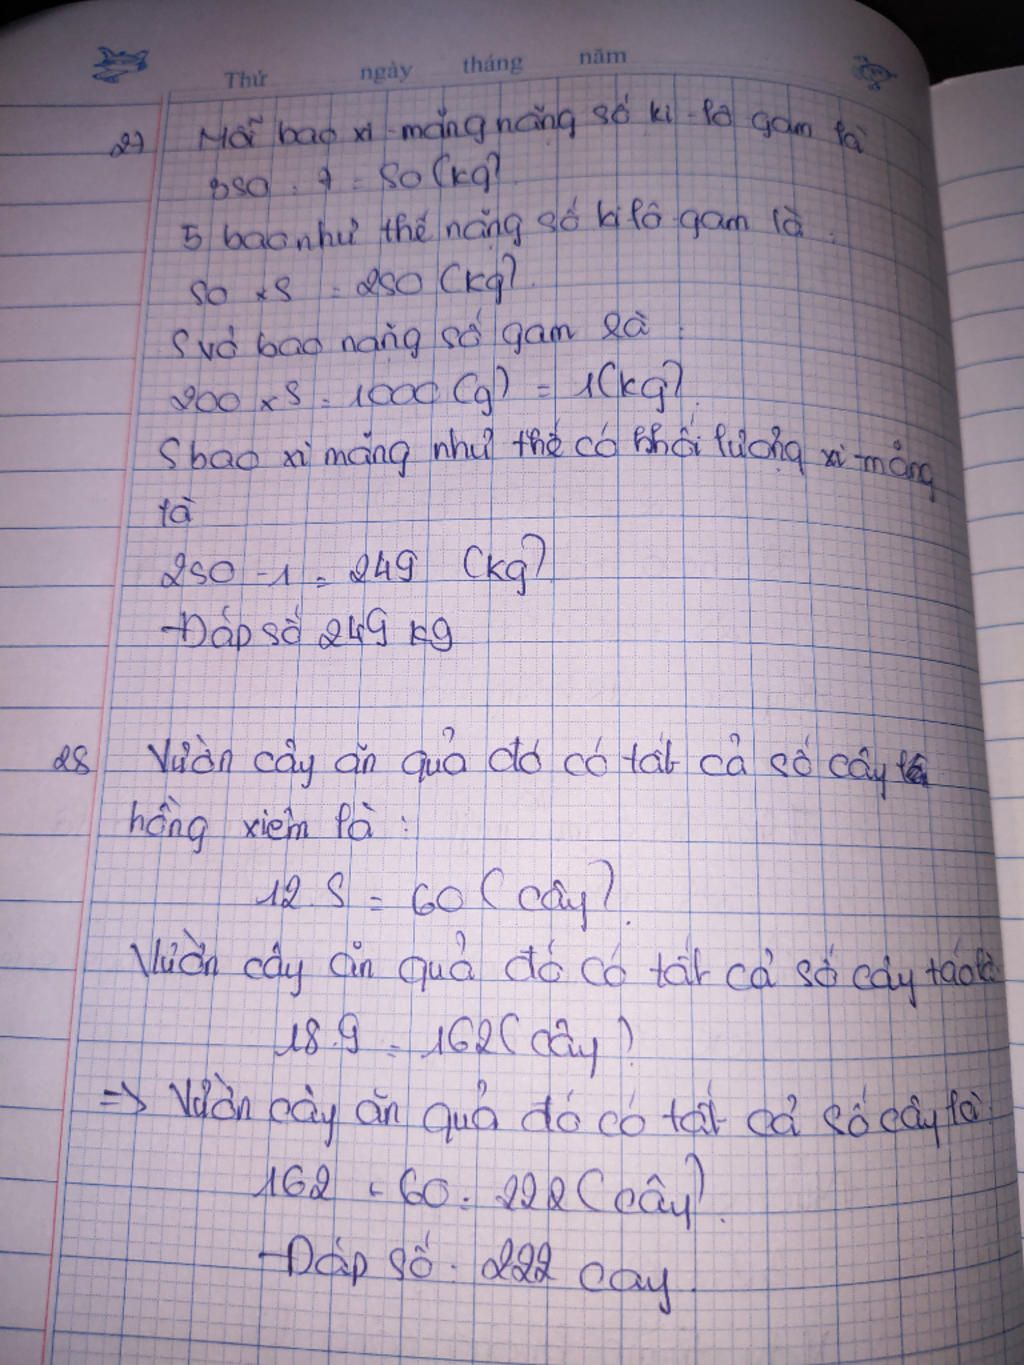 Thứ ngày tháng năm
27) Mỗi bao xi-măng nặng số ki-lô gam là
350 : 7 = 50 (kg)
5 bao như thế nặng số ki lô gam là :
50 x 5 = 250 (kg).
5 vỏ bao nặng số gam là :
200 x 5 = 1000 (g) = 1 (kg).
5 bao xi măng như thế có khối lượng xi-măng
là
250 - 1 = 249 (kg)
Đáp số 249 kg
28 Vườn cây ăn quả đó có tất cả số cây
hồng xiêm là :
12.5 = 60 (cây).
Vườn cây ăn quả đó có tất cả số cây táo là
18.9 = 162 (cây)
=> Vườn cây ăn quả đó có tất cả số cây là
162 + 60 = 222 (cây).
Đáp số : 222 cay